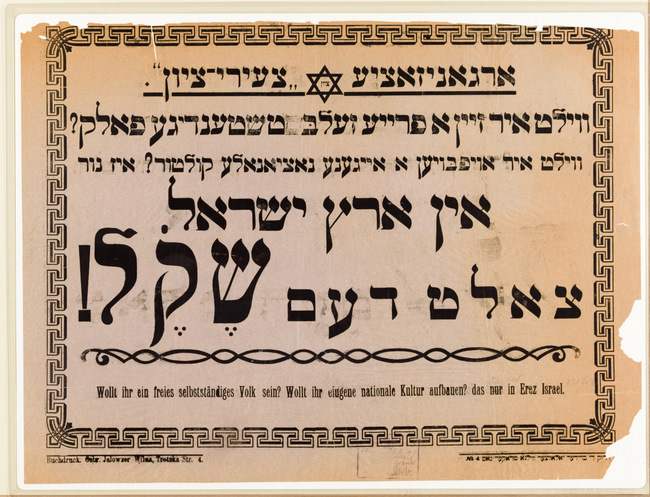 ארגאניזאציע „צעירי־ציון“.
ווילט איר זיין א פרייע זעלבסטשטענדיגע פאלק?
ווילט איר אויפבויען א אייגענע נאציאנאלע קולטור? איז נור
אין ארץ ישראל
צאלט דעם שֶׁקֶל!
Wollt ihr ein freies selbstständiges Volk sein? Wollt ihr eiugene nationale Kultur aufbauen? das nur in Erez Israel.
Buchdruck. Gebr. Jalowzer Wilna, Trotzka Str. 4.
ברידער יאלאווצער ווילנא טראקער גאס 4 №